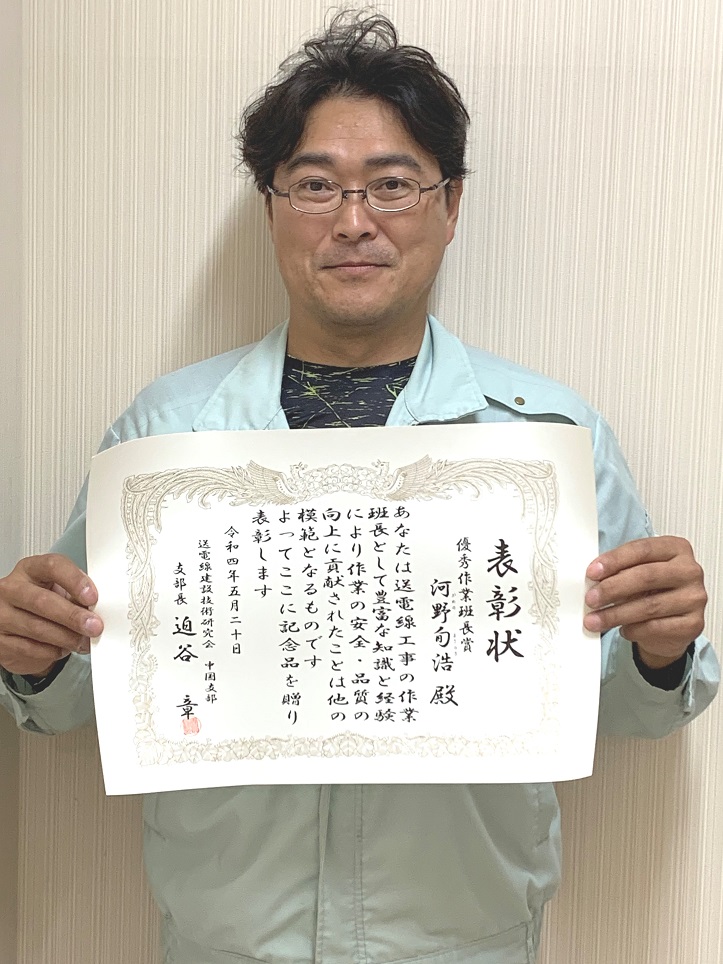 表彰状
優秀作業班長賞
河野旬浩 殿
あなたは送電線工事の作業
班長として豊富な知識と経験
により作業の安全・品質の
向上に貢献されたことは他の
模範となるものです
よってここに記念品を贈り
表彰します
令和四年五月二十日
送電線建設技術研究会 中国支部
支部長 迫谷 章